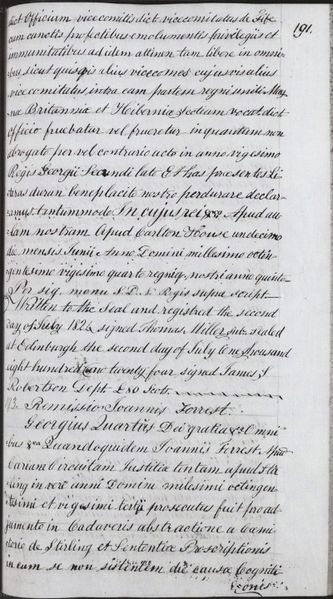 191.
dict Officium vicecomitis dict vicecomitatus de Fife
cum cunctis proficubus emolumentis privilegiis et
immunitatibus ad idem attinen tam libere in omni-
bus sicut quisquis alius vicecomes cujusvis alius
vicecomitatus intra eam partem regni uniti Mag-
nae Britanniae et Hiberniae Scotiam vocat dict
officio fruebatur vel frueretur in quantum non
abrogato per vel contrario acto in anno vigesimo
Regis Georgii Secundi lato Et has praesentes Li-
teras duran beneplacito nostro perdurare declar-
amus tantummodo In cujus rei &ca Apud au-
lam nostram Apud Carlton House undecimo
die mensis Junii Anno Domini millesimo octin-
gentesimo vigesimo quarto regniq nostri anno quinto
Per sig. manu S. D. N. Regis supra script.
Written to the Seal and registred the second
day of July 1824 signed Thomas Miller Sealed
at Edinburgh the second day of July One thousand
eight hundred and twenty four signed James
Robertson Dept £80 Scots.
Remissio Joannis Forrest.
Georgius Quartus Dei gratia &ca Omni
bus &ca Quandoquidem Joannis Forrest Apud
Curiam Circuitam Justitiae tentam apud Stir
ling in vere anni Domini milesimi octingen-
tesimi et vigesimi tertii prosecutus fuit pro ad-
jumento in Cadaveris abstractione a Coemi
terio de Stirling et Sententia Proscriptionis
in eum se non sistentem die causae Cognitio
ionis